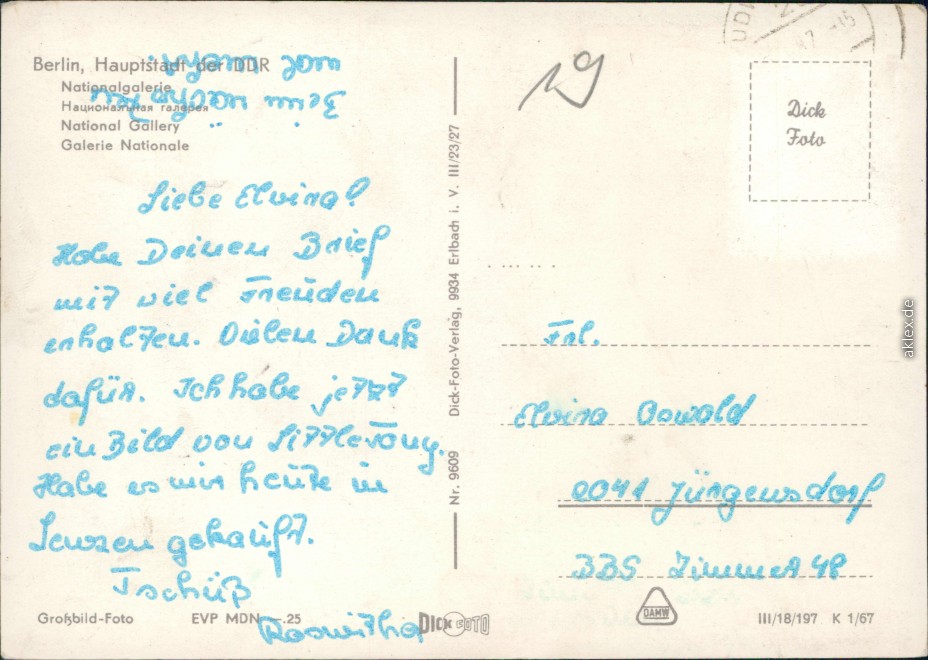 Berlin, Hauptstadt der DDR
Nationalgalerie
Национальная галерея
National Gallery
Galerie Nationale
Liebe Elvira!
Habe Deinen Brief
mit viel Freuden
erhalten. Vielen Dank
dafür. Ich habe jetzt
ein Bild von Little Tony.
Habe es mir heute in
gekauft.
Tschüß
Roswitha
Großbild-Foto
EVP MDN —.25
Nr. 9609
Dick-Foto-Verlag, 9934 Erlbach i. V. III/23/27
DICK FOTO
19
Dick
Foto
Frl.
Elvira Oswald
2041 Jürgensdorf
BBS Zimmer 48
DAMW
III/18/197 K 1/67
aklex.de